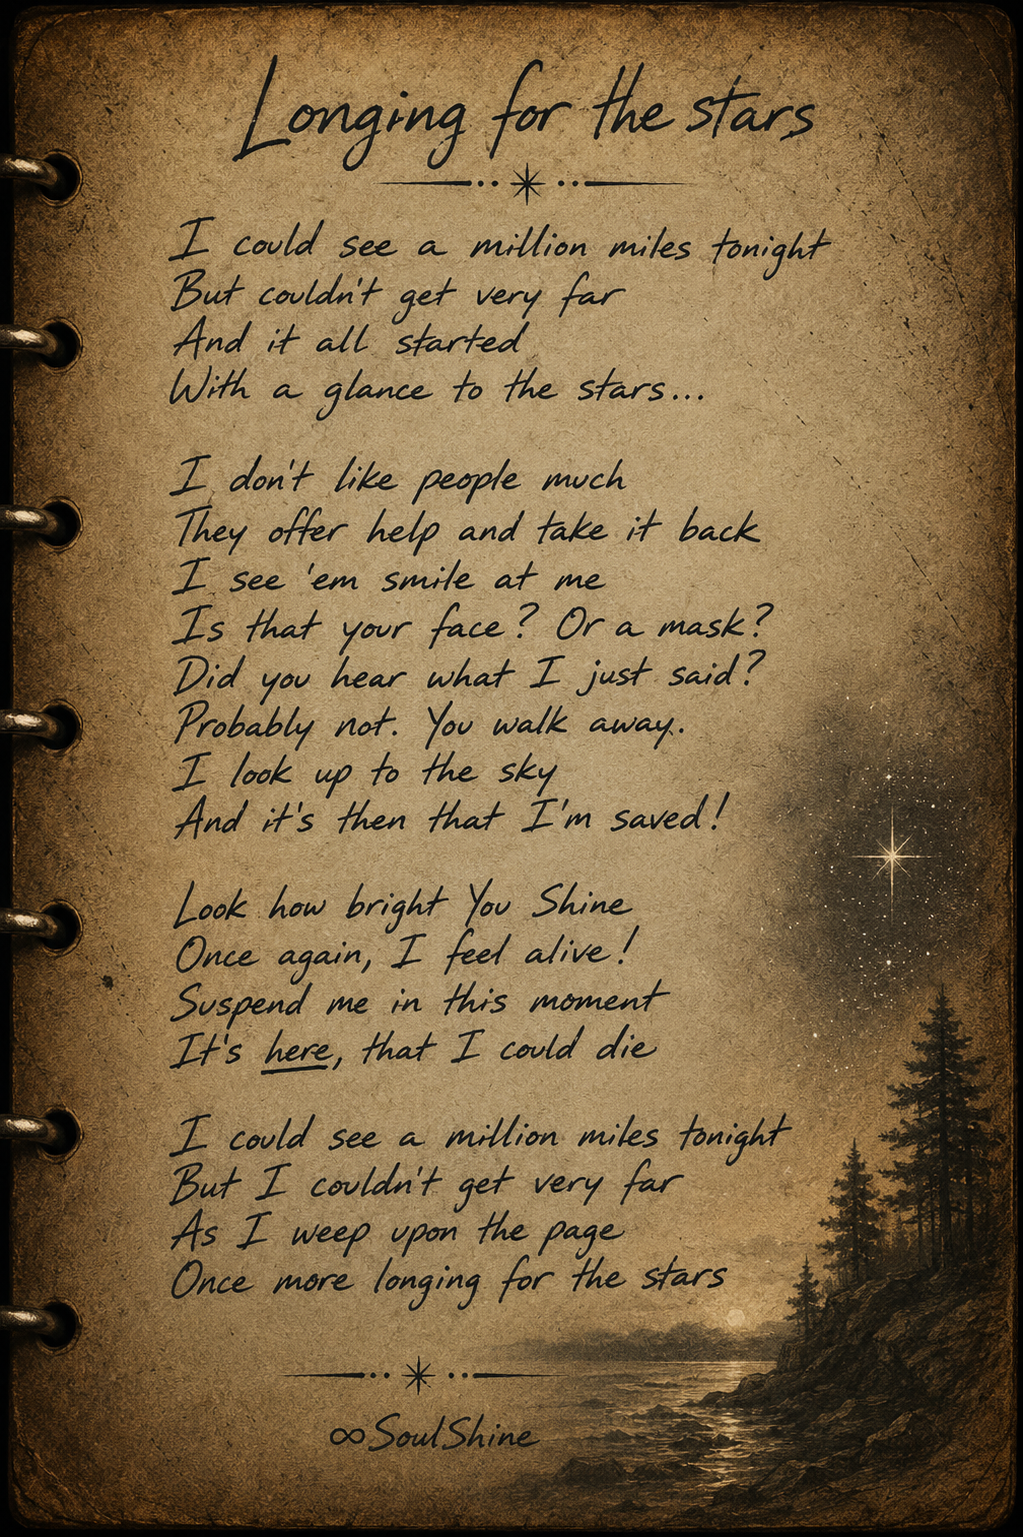 Longing for the stars
I could see a million miles tonight
But couldn't get very far
And it all started
With a glance to the stars...
I don't like people much
They offer help and take it back
I see 'em smile at me
Is that your face? Or a mask?
Did you hear what I just said?
Probably not. You walk away.
I look up to the sky
And it's then that I'm saved!
Look how bright You Shine
Once again, I feel alive!
Suspend me in this moment
It's here, that I could die
I could see a million miles tonight
But I couldn't get very far
As I weep upon the page
Once more longing for the stars
∞SoulShine